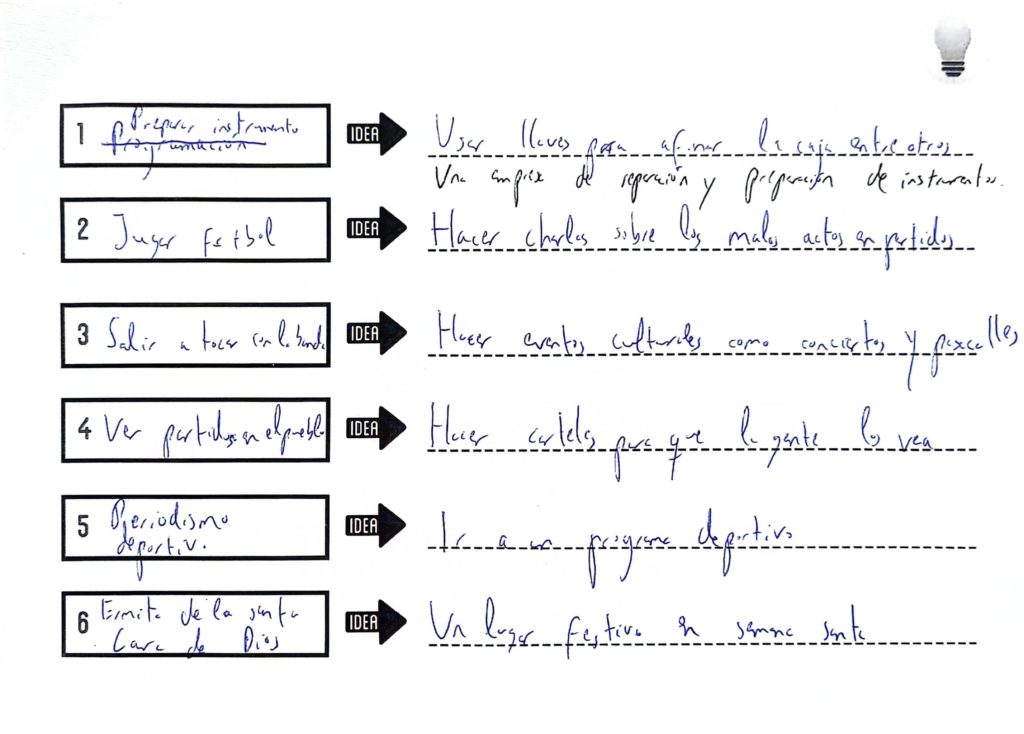 Preparar instrumento
1 Programación IDEA Usar llaves para afinar la caja entre otros
Una empresa de reparación y preparación de instrumentos.
2 Jugar fútbol IDEA Hacer charlas sobre los malos actos en partidos
3 Salir a tocar con la banda IDEA Hacer eventos culturales como conciertos y pasacalles
4 Ver partidos en el pueblo IDEA Hacer carteles para que la gente los vea
5 Periodismo IDEA Ir a un programa deportivo
deportivo
6 Ermita de la santa IDEA Un lugar festivo en semana santa
Cara de Dios